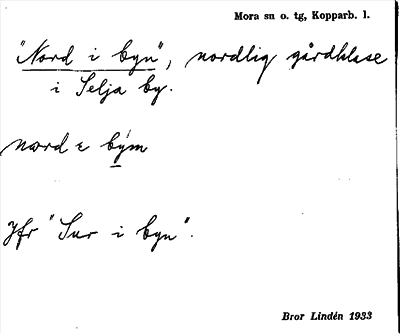 Mora sn o. tg, Kopparb. l.
"Nord i byn", nordlig gårdklase
i Selja by.
nord ɛ bým
Jfr "Sur i byn".
Bror Lindén 1933